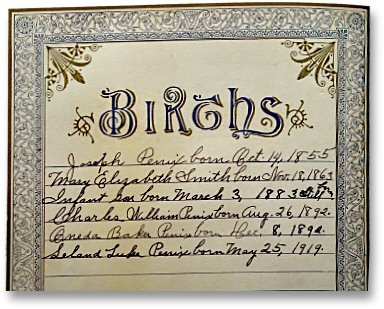 BIRTHS
Joseph Penix born Oct. 14, 1855
Mary Elizabeth Smith born Nov. 18, 1863
Infant son born March 3, 1883
Charles William Penix born Aug. 26, 1892.
Oneda Baker Penix born Dec. 8, 189
Leland Luke Penix born May 25, 1919.